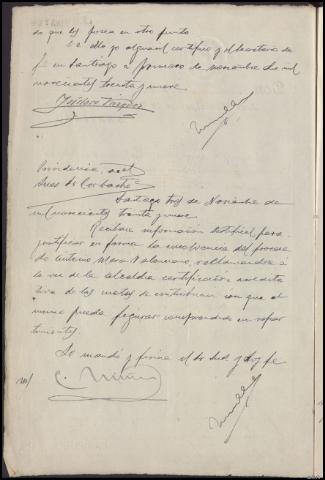 do que los posea en otro punto
De ello yo alguacil certifico y el Secretario da
fe en Santiago a primero de noviembre de mil
novecientos treinta y nueve
Providencia
Juez Sr Corbache
Santiago tres de Noviembre de
mil novecientos treinta y nueve
Recíbase información testifical para
justificar en forma la insolvencia del procesa
do Antonio Mora reclamándose a
la vez de la alcaldía certificación acredita
tiva de las cuotas de contribución con que el
mismo pueda figurar comprendido en repar
timientos
Lo mandó y firma el Sr Juez y doy fe